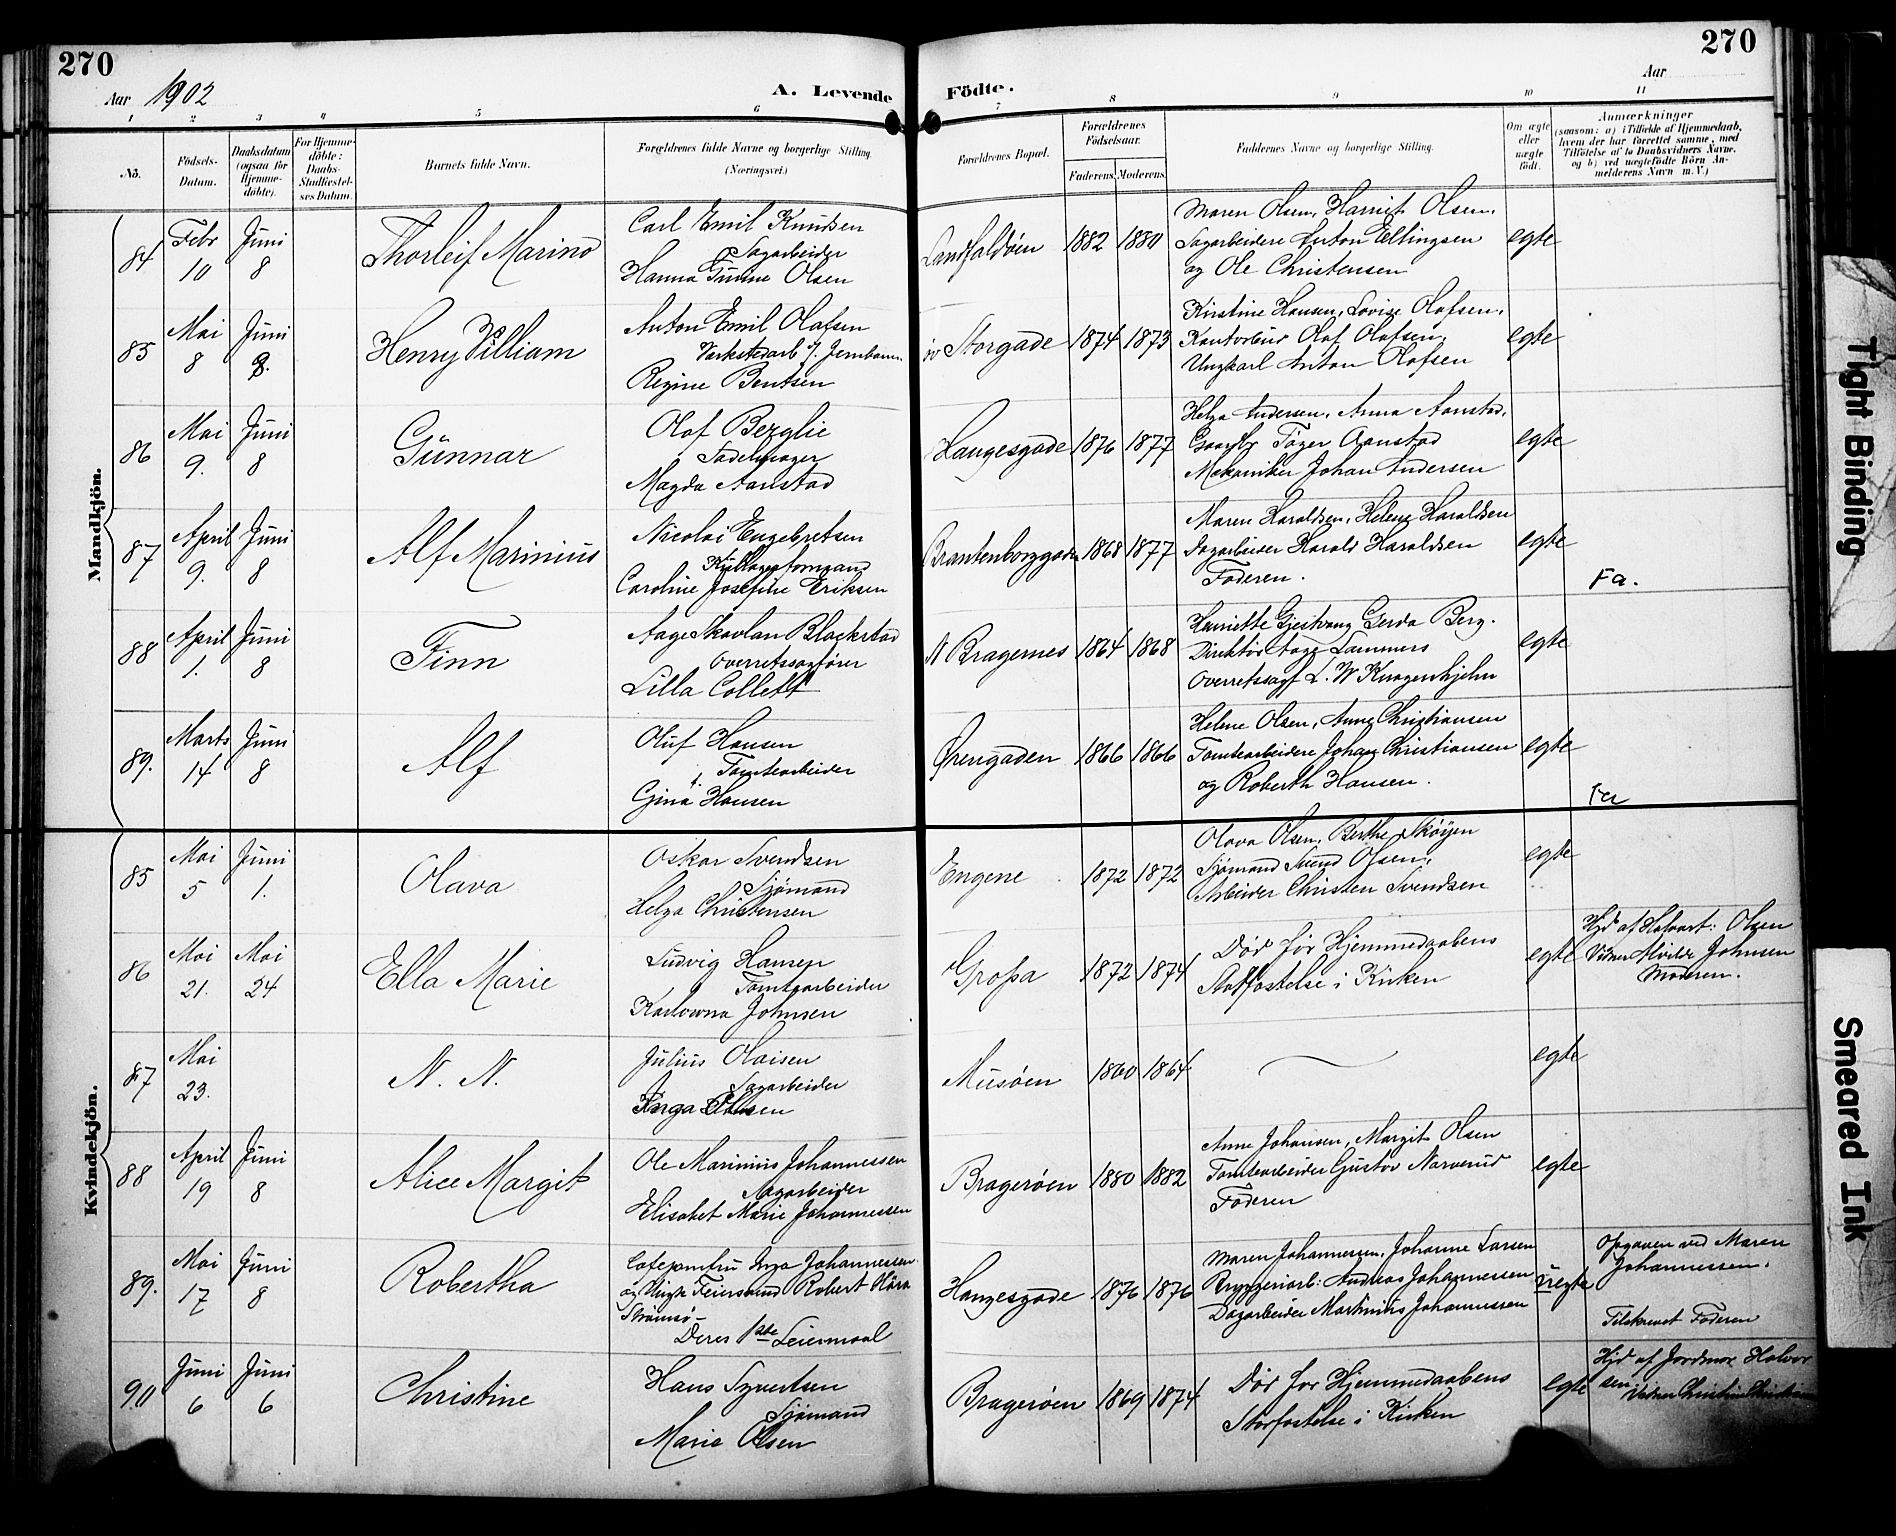 270
270
Aar 1902
A. Levende
Födte.
Aar
1 2 3 4 5 6 7 8 9 10 11
No.
Födsels-Datum.
Daabsdatum (ogsaa for Hjemmedöbte).
For Hjemmedöbte: Daabs-Stadfæstelses Datum.
Barnets fulde Navn.
Forældrenes fulde Navne og borgerlige Stilling. (Næringsvei.)
Forældrenes Bopæl.
Forældrenes Födselsaar.
Faderens. Moderens.
Faddernes Navne og borgerlige Stilling.
Om ægte eller uægte födt.
Anmærkninger
(saasom: a) i Tilfælde af Hjemmedaab,
hvem der har forrettet samme, med
Tilföielse af to Daabsvidners Navne,
og b) ved uægtefödte Börn An-
melderens Navn m. V.)
Mandkjön.
84 Febr 10 Juni 8 Thorleif Marino
Carl Emil Knudsen
Sagarbeider
Hanna Gunine Olsen
Landfaldöen 1882 1880
Maren Olsen, Harriet Olsen,
Sagarbeidere Anton Ellingsen
og Ole Christensen
egte
85 Mai 8 Juni 8. Henry William
Anton Emil Olafsen
Værkstedarb v/ Jernbanen
Regine Bentsen
öv Storgade 1874 1873
Kirstine Hansen, Lovise Olafsen,
Kontorbud Olaf Olafsen,
Ungkarl Anton Olafsen
egte
86 Mai 9. Juni 8 Gunnar
Olaf Berglie
Sadelmager
Magda Aanstad
Haugesgade 1876 1877
Helga Andersen, Anna Aanstad,
Gaardbr Töger Aanstad
Mekaniker Johan Andersen
egte
87 April 9. Juni 8 Alf Marinius
Nicolai Engebretsen
Caroline Josefine Eriksen
Brantenborggaden 1868 1877
Maren Haraldsen, Helene Haraldsen
Sagarbeider Harald Haraldsen
Faderen.
egte
Fa.
88 April 1. Juni 8 Finn
Aage Skavlan Blackstad
Overretssagförer
Lilla Collett
N Bragernes 1864 1868
Henriette Gjestvang Gerda Berg.
Direktör Aage Lammers
Overretssagf L. W. Knagenhjelm
egte
89. Marts 14 Juni 8 Alf
Oluf Hansen
Tomtearbeider
Gina Hansen
Ørengaden 1866 1866
Helene Olsen, Anne Christiansen
Tomtearbeidere Johan Christiansen
og Roberth Hansen.
egte
Fa
Kvindekjön.
85 Mai 5 Juni 1. Olava
Oskar Svendsen
Sjömand
Helga Christensen
Engene 1872 1872
Olava Olsen, Berthe Sköyen
Sjömand Svend Olsen,
Arbeider Christen Svendsen
egte
86 Mai 21. Mai 24 Ella Marie
Ludvig Hansen
Tomtearbeider
Karlovna Johnsen
Grossa 1872 1874
Död för Hjemmedaabens
Stadfæstelse i Kirken
egte
Hjd af Halvart: Olsen
Vidner Alvilde Johnsen
Moderen.
87 Mai 23. N. N.
Julius Olaisen
Sagarbeider
Inga Olsen
Musöen 1860 1864
egte
88 April 19 Juni 8 Alice Margit
Ole Marinius Johannessen
Sagarbeider
Elisabet Marie Johannessen
Brageröen 1880 1882
Anne Johansen, Margit Olsen
Tomtearbeider Gustav Narverud
Faderen
egte
89. Mai 17 Juni 8 Robertha
Inga Johannessen
og Robert
Strömsö
Deres 1ste Leiermaal
Haugesgade 1876 1876
Maren Johannessen, Johanne Larsen
Bryggeriarb: Andreas Johannessen
Dagarbeider Martinius Johannessen
uegte
Opgaven ved Maren
Johannessen.
Tilskrevet Faderen
90 Juni 6 Juni 6 Christine
Hans Syvertsen
Sjömand
Marie Olsen
Brageröen 1869 1874
Död for Hjemmedaabens
Stadfæstelse i Kirken
egte
Hjd af Jordmor Halvor
sen.
Tight Binding
Smeared Ink